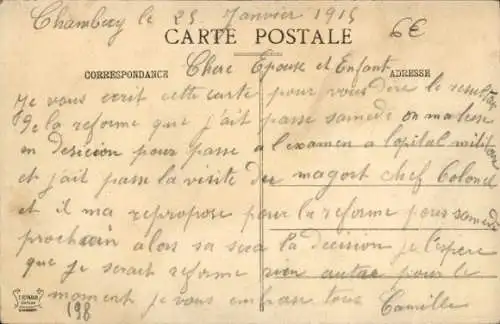 Chambery le 25 Janvier 1915
6€
CARTE POSTALE
CORRESPONDANCE
Chere Epouse et Enfant
ADRESSE
Je vous ecrit cette carte pour vous dire le resultat
de la reforme que j'ait passe samedi on ma lese
en desicion pour passe a l'examen a l'opital militaire
et j'ait passe la visite du magort chef Colonel
et il ma repropose pour la reforme pour samedi
prochain alors sa sera la decision je l'espere
que je serait reforme rien autre pour le
moment je vous embrasse tous Camille
198